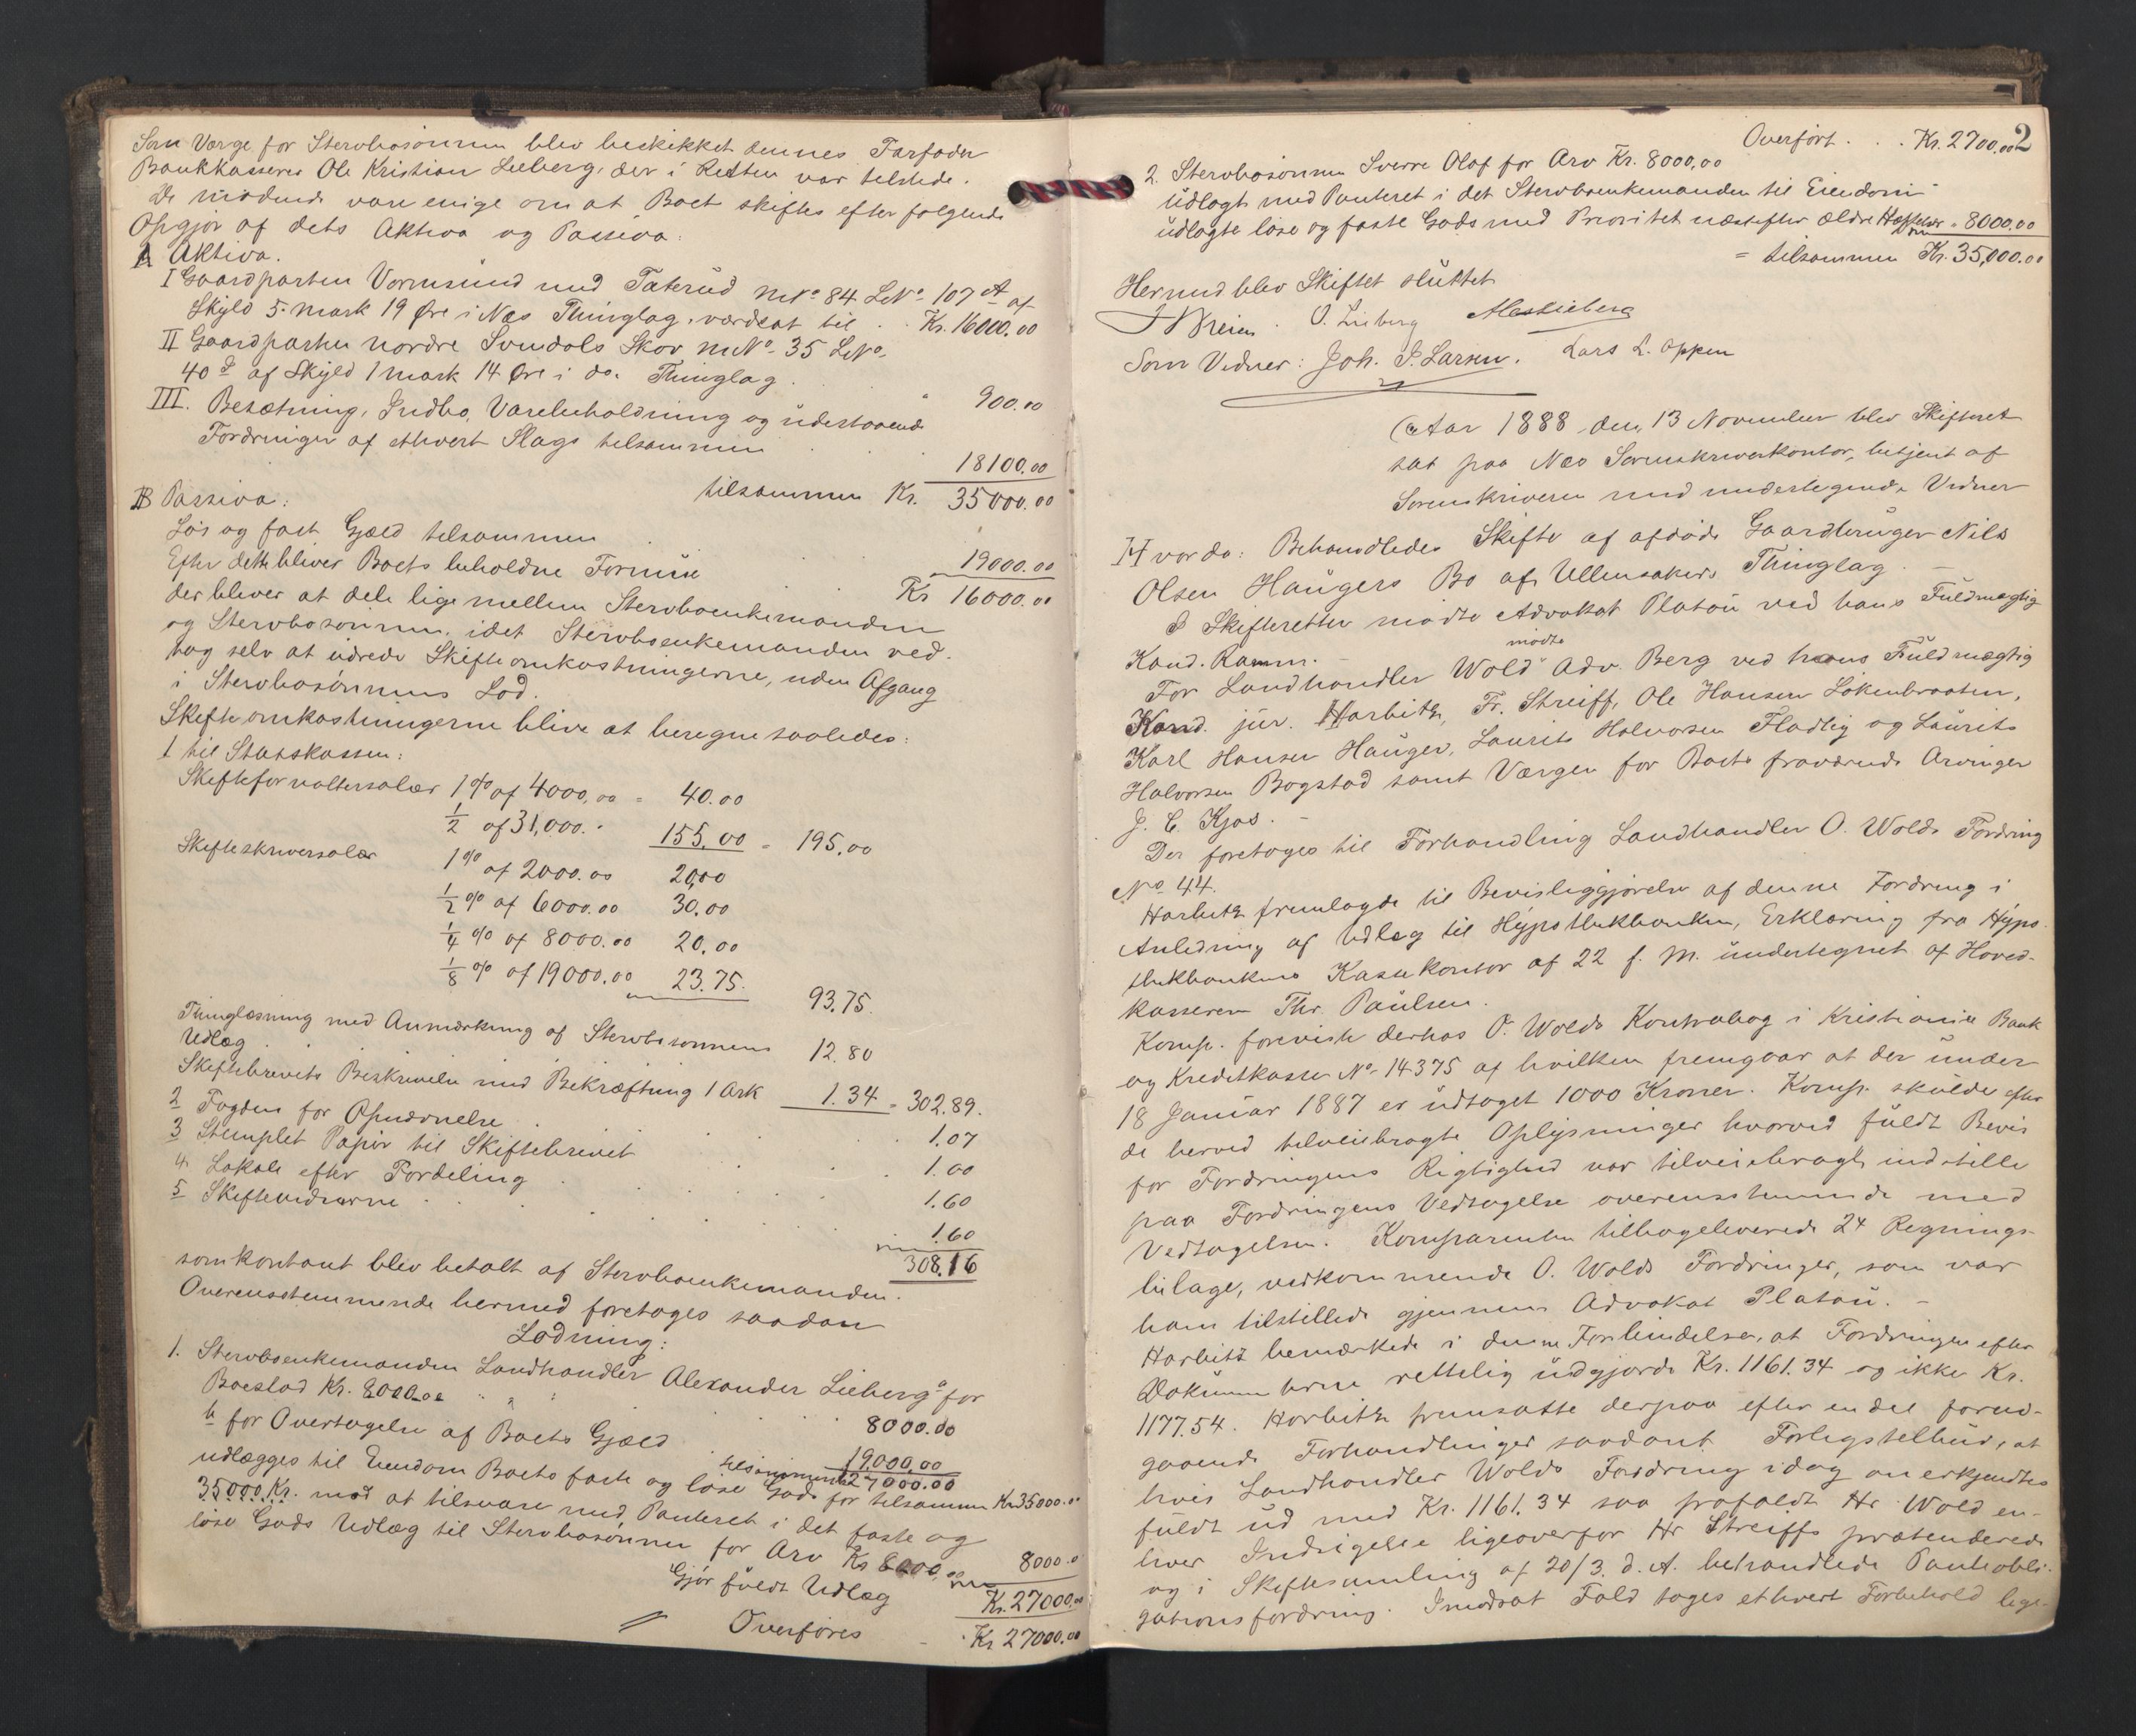 Som Værge for Stervbosønnen blev beskikket dennes Farfader
Bankkasserer Ole Kristian Lieberg, der i Retten var tilstede.
De mødende vare enige om at Boet skiftes efter følgende
Opgjør af dets Aktiva og Passiva:
A Aktiva.
I Gaardparten Vormsund med Taterud MNo 84 LNo 107 A af
Skyld 5 Mark 19 Øre i Næs Thinglag, værdsat til . . Kr. 16000.00
II Gaardparten nordre Svendals Skov MNo 35 LNo
40 d af Skyld 1 Mark 14 Øre i do. Thinglag . . " 900.00
III. Besætning, Indbo, Varebeholdning og udestaaende
Fordringer af ethvert Slags tilsammen . . . 18100.00
tilsammen Kr. 35000.00
B Passiva:
Løs og fast Gjæld tilsammen . . 19000.00
Efter dette bliver Boets beholdne Formue . . Kr 16000.00
der bliver at dele lige mellem Stervboenkemanden
og Stervbosønnen, idet Stervboenkemanden ved-
tog selv at udrede Skifteomkostningerne, uden Afgang
i Stervbosønnens Lod.
Skifteomkostningerne blive at beregne saaledes:
1 til Statskassen:
Skifteforvaltersalær 1 % af 4000,00 = 40.00
1/2 af 31,000. " 155.00 = 195,00
Skifteskriversalær 1 % af 2000.00 20,00
1/2 % af 6000.00 30.00
1/4 % af 8000.00 20.00
1/8 % af 19000.00 23.75. 93.75.
Thinglæsning med Anmærkning af Stervbosønnens
Udlæg . . 12.80
Skiftebrevets Beskrivelse med Bekræftning 1 Ark 1.34 = 302.89.
2 Fogden for Opnævnelse . . . 1.07
3 Stemplet Papir til Skiftebrevet . . . 1.00
4 Lokale efter Fordeling . . . 1.60
5 Skiftevidnerne . . . 1.60
308.16
som kontant blev betalt af Stervboenkemanden.
Overensstemmende hermed foretoges saadan
Lodning:
1. Stervboenkemanden Landhandler Alexander Lieberg a for
Boeslod Kr. 8000.00 . . 8000.00
b for Overtagelse af Boets Gjæld . . 19.000,00
tilsammen 27000.00
udlægges til Eiendom Boets faste og løse Gods for tilsammen Kr 35000.00
35000 Kr. mod at tilsvare med Panteret i det faste og
løse Gods Udlæg til Stervbosønnen for Arv Kr 8000,00 8000.00
Gjør fuldt Udlæg Kr. 27000.00
Overføres Kr 27000.00
2
Overført . . . Kr. 27000.00
2. Stervbosønnen Sverre Olaf for Arv Kr. 8000,00
udlagt med Panteret i det Stervboenkemanden til Eiendom
udlagte løse og faste Gods med Prioritet næstefter ældre Hæftelser " 8000.00
= tilsammen Kr. 35,000.00
Hermed blev Skiftet sluttet
O. Lieberg Alex Lieberg
Som Vidner: Joh. P. Larsen. Lars L. Oppen
Aar 1888 den 13 November blev Skifteret
sat paa Næs Sorenskriverkontor, betjent af
Sorenskriveren med undertegnede Vidner
Hvorda: Behandledes Skifte af afdøde Gaardbruger Nils
Olsen Haugers Bo af Ullensakers Thinglag.
I Skifteretten mødte Advokat Platou ved hans Fuldmægtig
Kand. Ramm.
For Landhandler Wold mødte Adv. Berg ved hans Fuldmægtig
Kand. jur. Harbitz, Fr. Streiff, Ole Hansen Løkenbraaten,
Karl Hansen Hauger, Laurits Halvorsen Fladlig og Laurits
Halvorsen Bogstad samt Værgen for Boets fraværende Arvinger
J. C. Kjos.
Der foretoges til Forhandling Landhandler O. Wolds Fordring
No 44.
Harbitz fremlagde til Bevisliggjørelse af denne Fordring i
Anledning af Udlæg til Hypothekbanken, Erklæring fra Hypo-
thekbankens Kassekontor af 22 f. M. undertegnet af Hoved-
kasserer Thr. Paulsen.
Komp. foreviste derhos O. Wolds Kontrabog i Kristiania Bank
og Kreditkasse No 14375 af hvilken fremgaar at der under
18 Januar 1887 er udtaget 1000 Kroner. Komp. skulde efter
de herved tilveiebragte Oplysninger hvorved fuldt Bevis
for Fordringens Rigtighed var tilveiebragt, indstille
paa Fordringens Vedtagelse overensstemmende med
Vedtagelsen. Komparenten tilbageleverede 24 Regnings-
bilage, vedkommende O. Wolds Fordringer, som var
ham tilstillede gjennem Advokat Platou.
Harbitz bemærkede i denne Forbindelse, at Fordringen efter
Dokumenterne rettelig udgjorde Kr. 1161.34 og ikke Kr.
1177.54. Harbitz fremsatte derpaa efter endel forud-
gaaende Forhandlinger saadant Forligstilbud, at
hvis Landhandler Wolds Fordring idag anerkjendtes
fuldt ud med Kr. 1161.34 saa frafaldt Hr. Wold en-
hver Indsigelse ligeoverfor Hr Streiffs prætenderede
og i Skiftesamling af 20/3 d. A. behandlede Panteobli-
gationsfordring. I modsat Fald toges ethvert Forbehold lige-